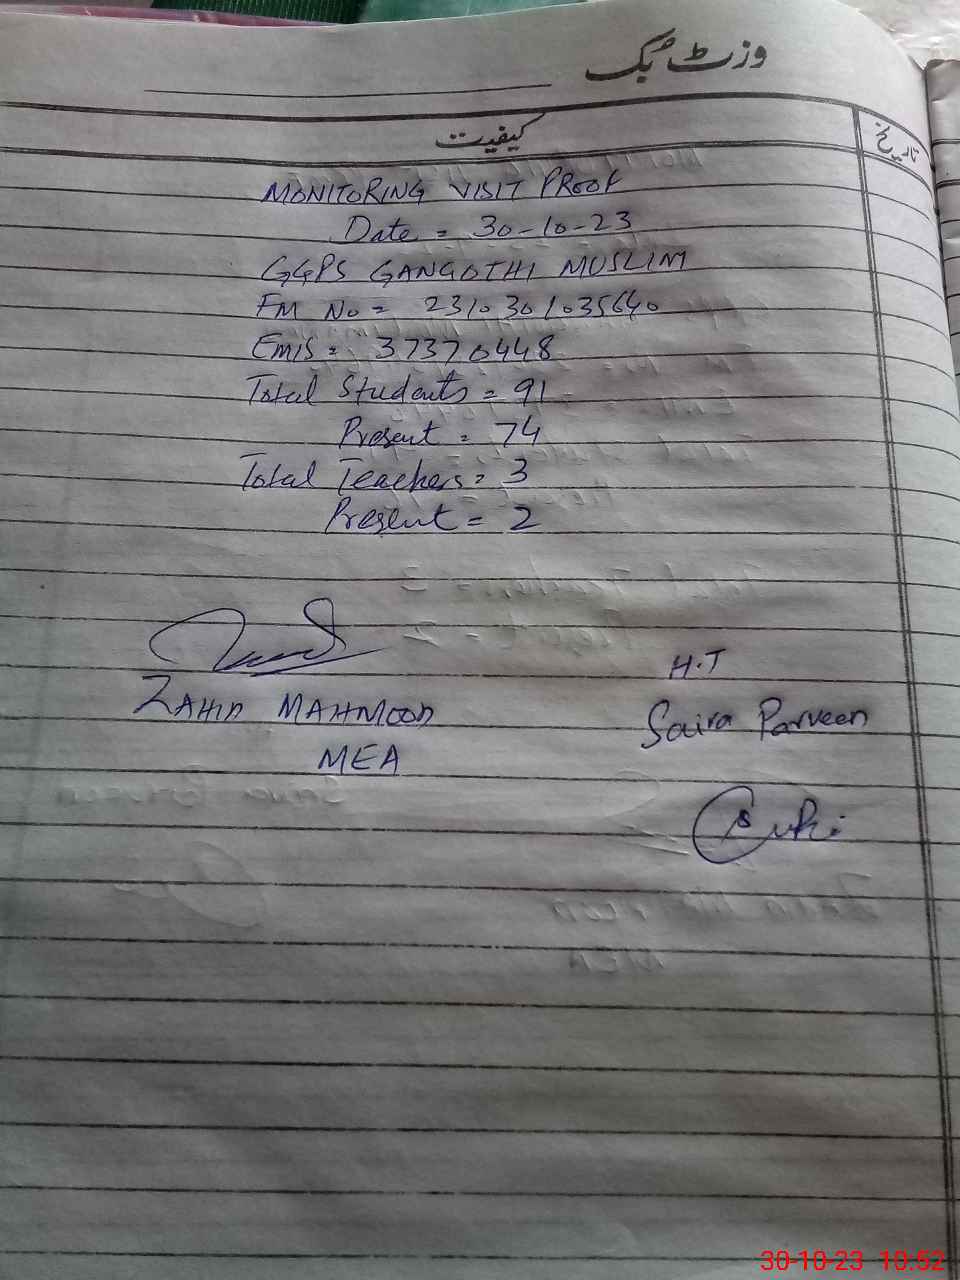 وزٹ بک
کیفیت
تاریخ
MONITORING VISIT PROOF
Date = 30-10-23
GGPS GANGOTHI MUSLIM
FM No = 2310301035640
Emis = 37370448
Total Students = 91
Present = 74
Total Teachers = 3
Present = 2
H.T
ZAHID MAHMOOD
Saira Parveen
MEA
30-10-23 10:52